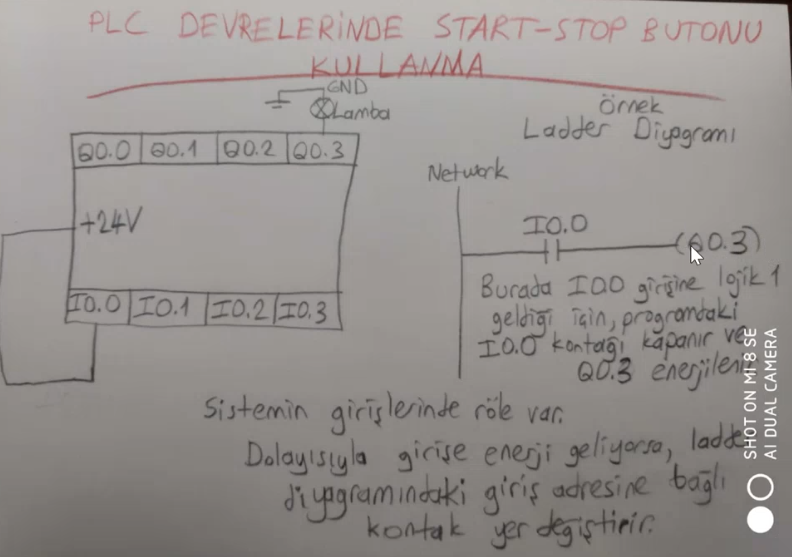 PLC DEVRELERİNDE START-STOP BUTONU
KULLANMA
GND
Lamba
Örnek
Ladder Diyagramı
Q0.0 Q0.1 Q0.2 Q0.3
Network
+24V
I0.0
(Q0.3)
I0.0 I0.1 I0.2 I0.3
Burada I0.0 girişine lojik 1
geldiği için, programdaki
I0.0 kontağı kapanır ve
Q0.3 enerjilenir
Sistemin girişlerinde röle var.
Dolayısıyla girişe enerji geliyorsa, ladder
diyagramındaki giriş adresine bağlı
kontak yer değiştirir.
SHOT ON MI 8 SE
AI DUAL CAMERA